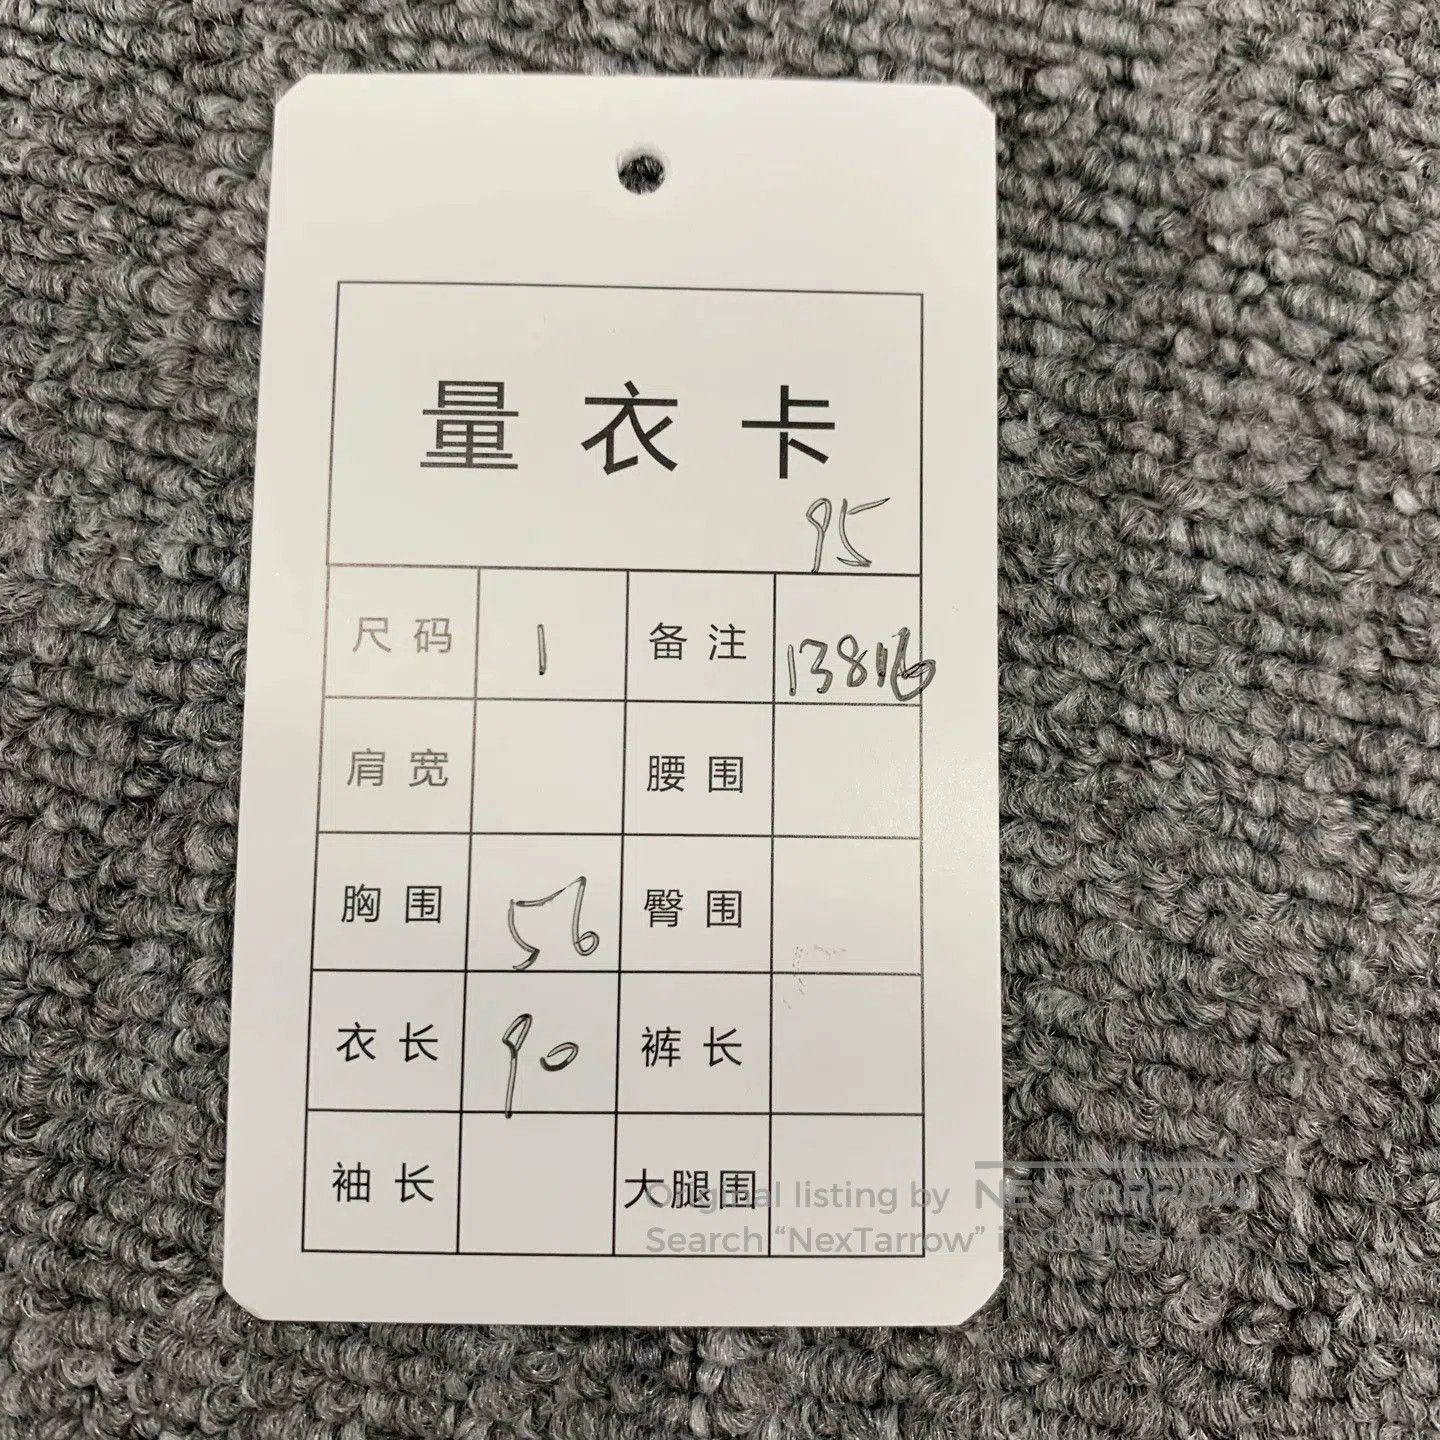 量衣卡
95
尺码 1 备注 13816
肩宽 腰围
胸围 56 臀围
衣长 90 裤长
袖长 大腿围
Original listing by NEXTARROW
Search “NexTarrow”